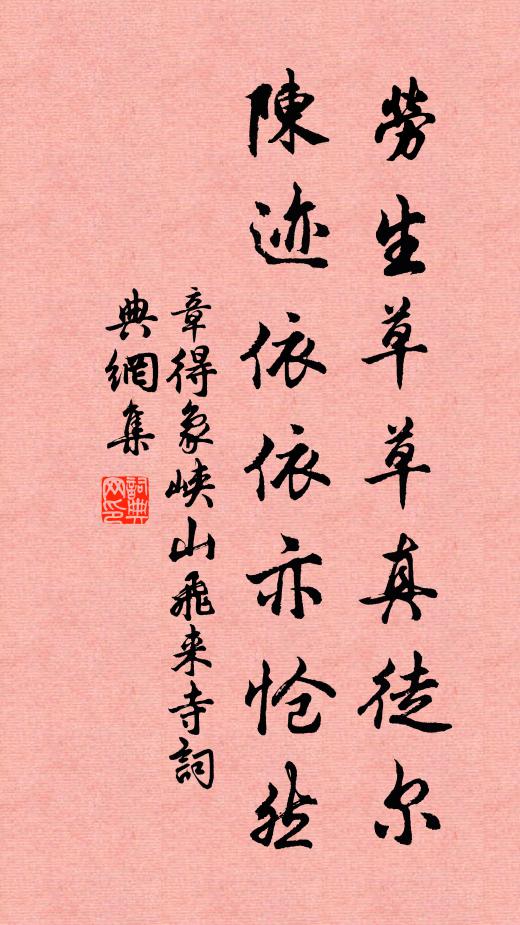 勞生草草真徒尔
陳迹依依亦怆然
章得象峡山飛来寺詞
典網集
詞典网印